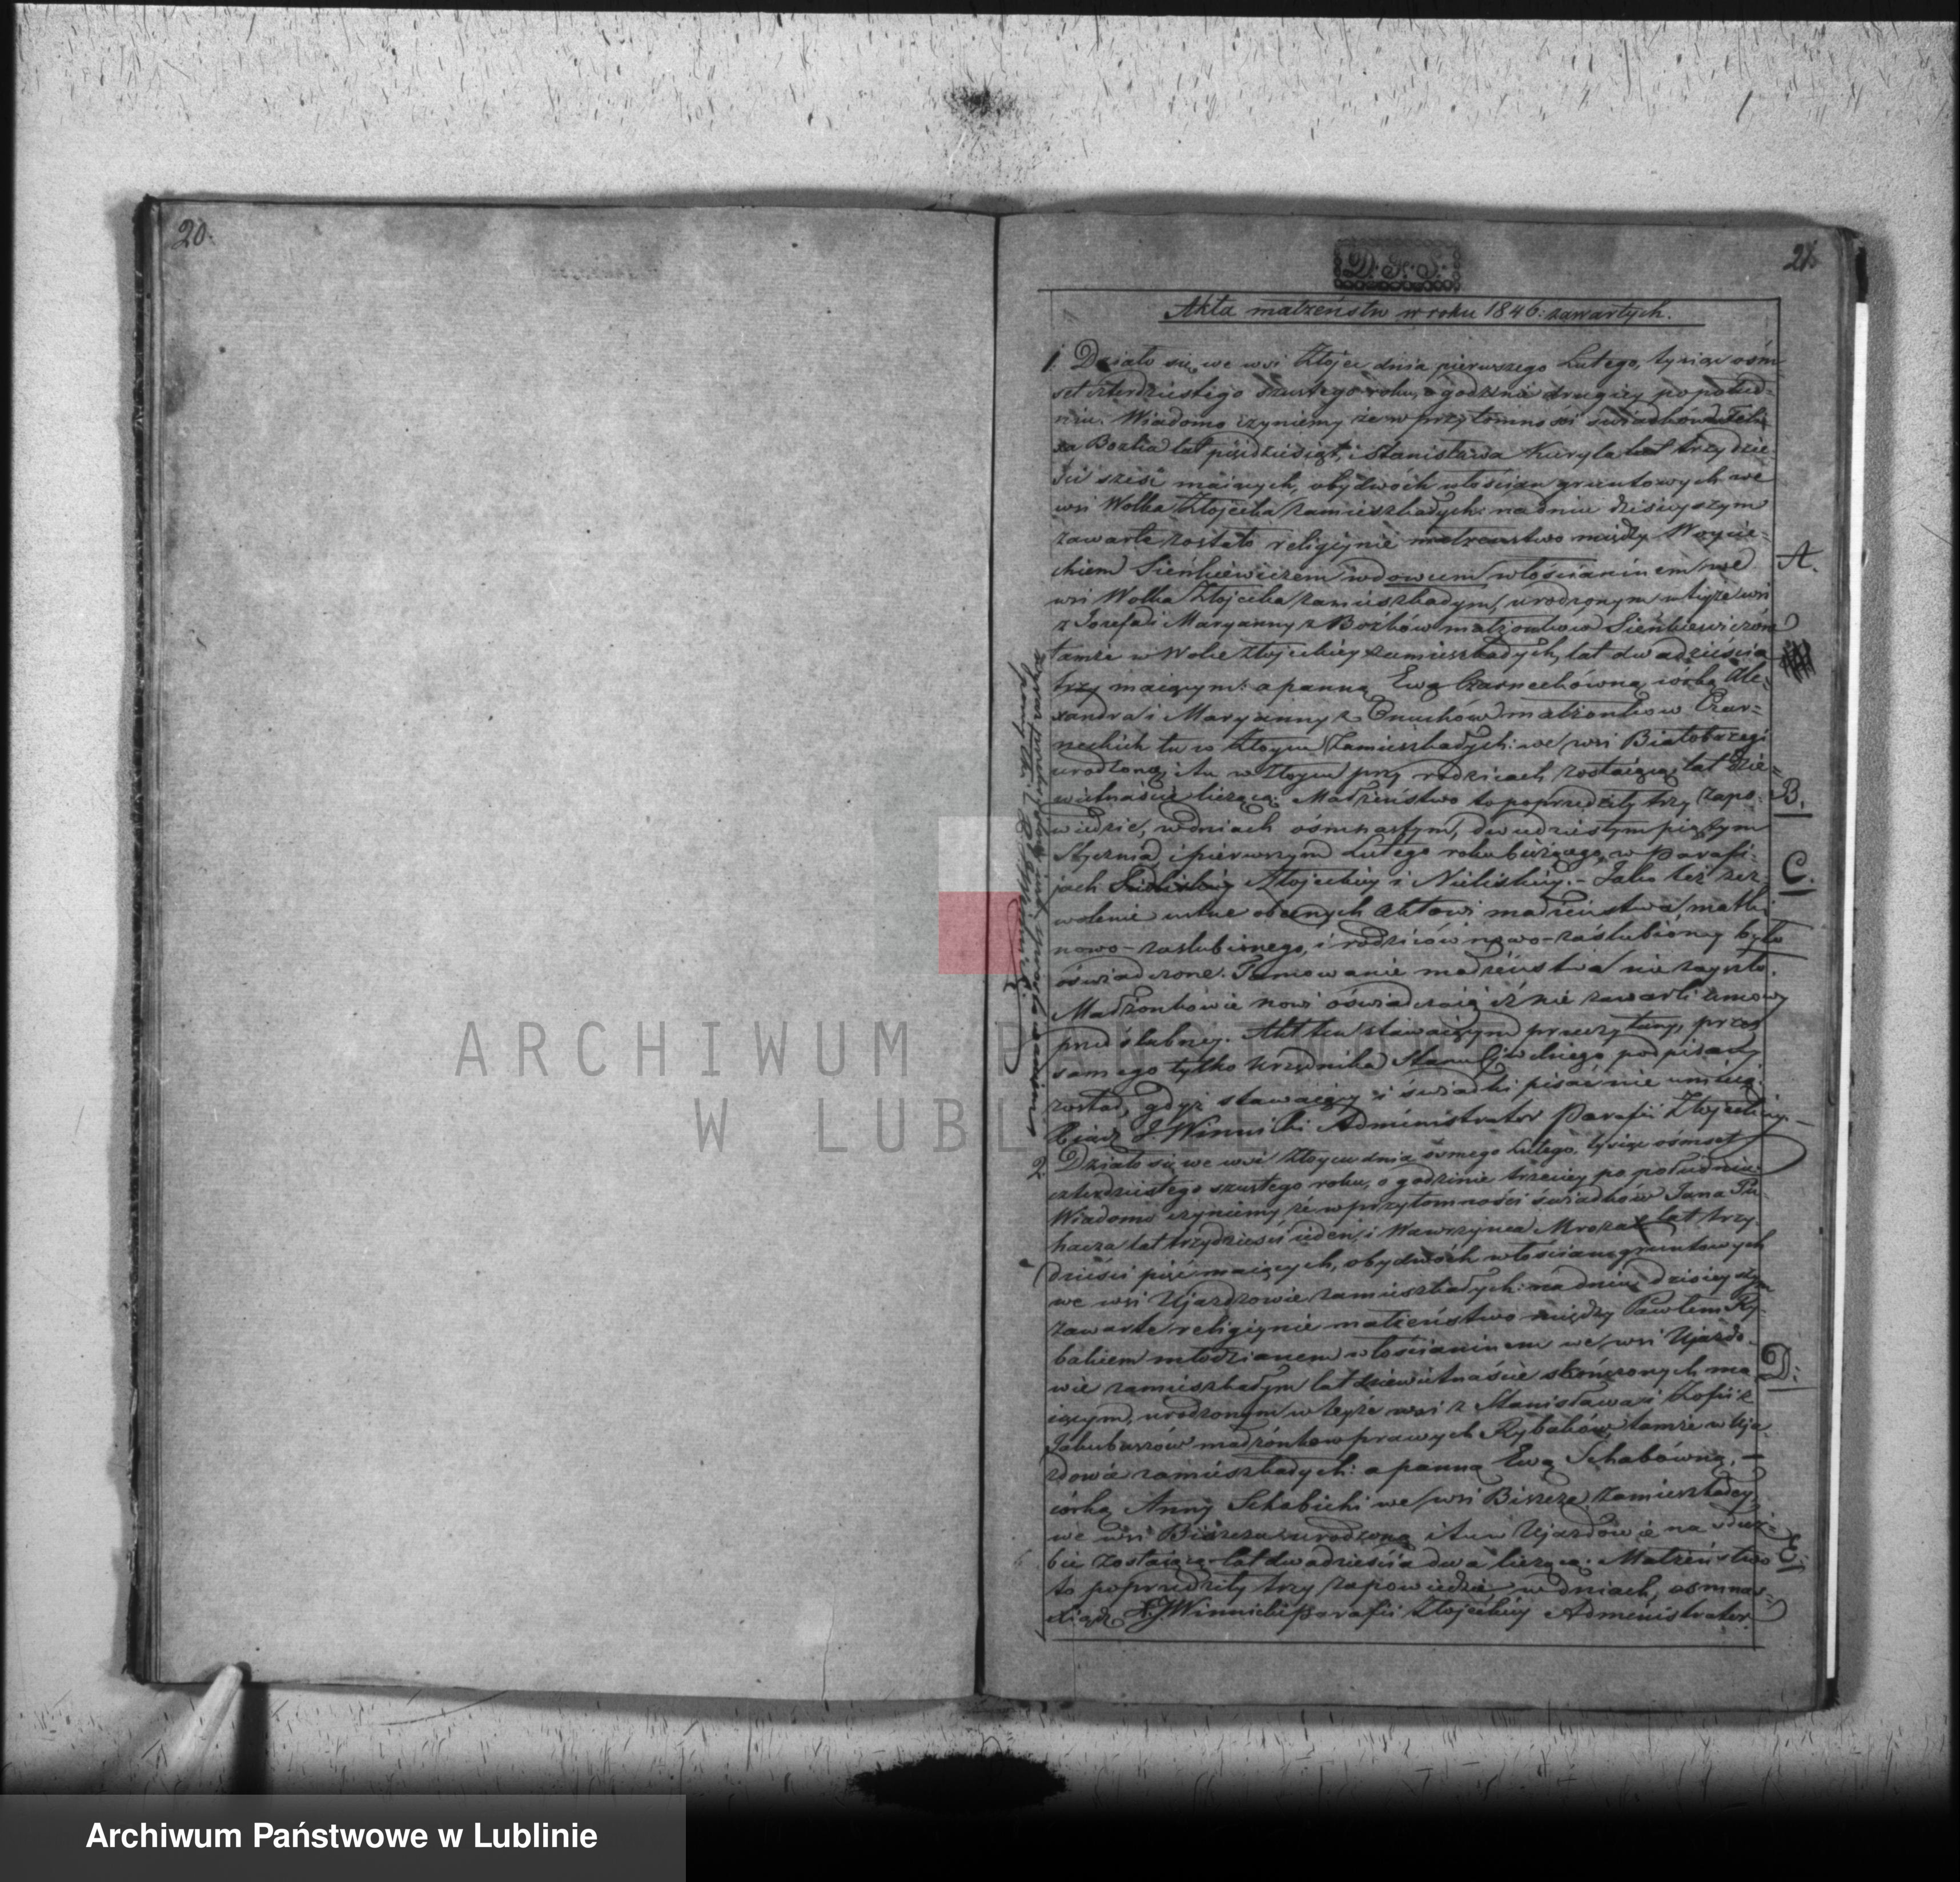 20.
21.
D. G. S.
Akta małżeństw w roku 1846. zawartych.
1. Działo się we wsi Złojcu dnia pierwszego Lutego, tysiąc ośm-
set czterdziestego szóstego roku, o godzinie drugiéy popołud-
niu. Wiadomo czynimy że w przytomności świadków
lat pięćdziesiąt, i Stanisława Kuryla lat trzydzie-
ści sześć maiących, obydwóch włościan gruntowych we
wsi Wolka Złojecka zamieszkałych: na dniu dzisieyszym
zawarte zostało religijnie małżeństwo między Woycie-
chiem Sienkiewiczem wdowcem włościaninem we A.
wsi Wolka Złojecka zamieszkałym, urodzonym w teyże wsi
z Jozefa i Maryanny z małżonków Sienkiewiczów
tamże w Wolce Złojeckiey zamieszkałych, lat dwadzieścia
trzy maiącym: a panną Ewą Czarnechówną, córką Ale-
xandra i Maryanny z małżonkow Czar-
neckich tu w Złoycu zamieszkałych: we wsi Białobrzegi
urodzoną, i tu w Złoycu przy rodzicach zostaiącą, lat dzie-
więtnaście liczącą. Małżeństwo to poprzedziły trzy zapo- B.
wiedzie, w dniach ośmnastym, dwudziestym piątym
Stycznia, i pierwszym Lutego roku bieżącego, w Parafi-
jach Złojeckiey i Nieliskiey. – Jako też zez- C.
wolenie ustne obecnych Aktowi małżeństwa, matki
nowo-zaslubionego, i rodziców nowo-zaślubioney było
oświadczone. Tamowanie małżeństwa nie zayszło.
Małżonkowie nowi oświadczaią iż nie zawarli umowy
przedślubney. Akt ten stawaiącym przeczytany, przez
samego tylko Urzędnika Stanu Cywilnego podpisany
został, gdyż stawaiący i świadki pisać nie umieią.
Xiądz J. Winnicki Administrator Parafii Złojeckiey. –
2. Działo się we wsi Złoycu dnia osmego Lutego, tysiąc ośmset
czterdziestego szóstego roku, o godzinie trzeciey po południu.
Wiadomo czynimy że w przytomności świadków Jana Pu-
hacza lat trzydzieści ieden, i Wawrzyńca Mroza lat trzy-
dzieści pięć maiących, obydwóch włościan gruntowych
we wsi Ujazdzowie zamieszkałych: na dniu dzisieyszym
zawarte religijnie małżeństwo między Pawłem Ry-
bakiem młodzianem włościaninem we wsi Ujazdo-
wie zamieszkałym lat dziewiętnaście skończonych ma- D.
iącym, urodzonym w teyże wsi z Stanisława i Zofii z
Jakubaszów małżonkow prawych Rybaków, tamże w Uja-
zdowie zamieszkałych: a panną Ewą Schabówną, –
córką Anny Schabichi we wsi Biszcze zamieszkałey,
we wsi Biszcza urodzoną i tu w Ujazdowie na służ-
bie zostaiącą lat dwadzieścia dwa liczącą. Małżeństwo E.
to poprzedziły trzy zapowiedzie w dniach, osmnas-
Xiądz J. Winnicki parafii Złojeckiey Administrator
ARCHIWUM PAŃSTWOWE
W LUBLINIE
Archiwum Państwowe w Lublinie